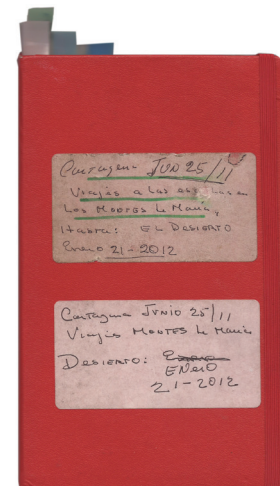 Cartagena JUN 25/11
Viajes a las escuelas en
Los Montes de María,
Hasta: EL DESIERTO
Enero 21-2012
Cartagena JUNIO 25/11
Viajes MONTES de María
DESIERTO: Enero
ENERO
21-2012